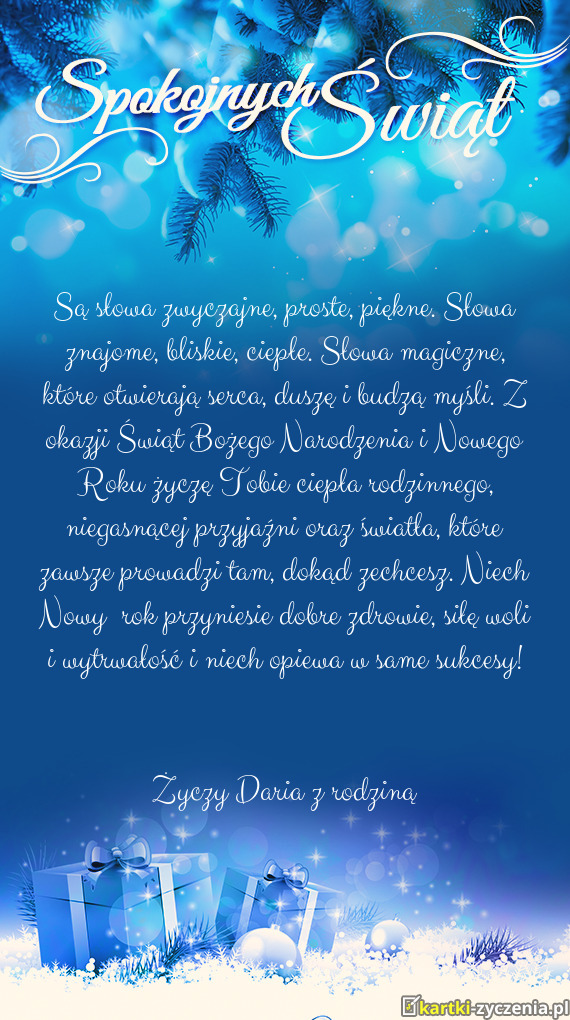 Spokojnych Świąt
Są słowa zwyczajne, proste, piękne. Słowa
znajome, bliskie, ciepłe. Słowa magiczne,
które otwierają serca, duszę i budzą myśli. Z
okazji Świąt Bożego Narodzenia i Nowego
Roku życzę Tobie ciepła rodzinnego,
niegasnącej przyjaźni oraz światła, które
zawsze prowadzi tam, dokąd zechcesz. Niech
Nowy rok przyniesie dobre zdrowie, siłę woli
i wytrwałość i niech opiewa w same sukcesy!
Życzy Daria z rodziną
kartki-zyczenia.pl